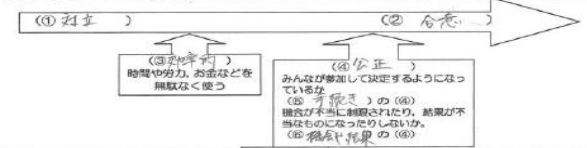 (① 対立 ) (② 合意 )
(③効率的 )
時間や労力、お金などを
無駄なく使う
(④ 公正 )
みんなが参加して決定するようになっ
ているか
(⑤ 手続き ) の (④)
機会が不当に制限されたり、結果が不
当なものになったりしないか。
(⑥ 機会や結果 の (④)